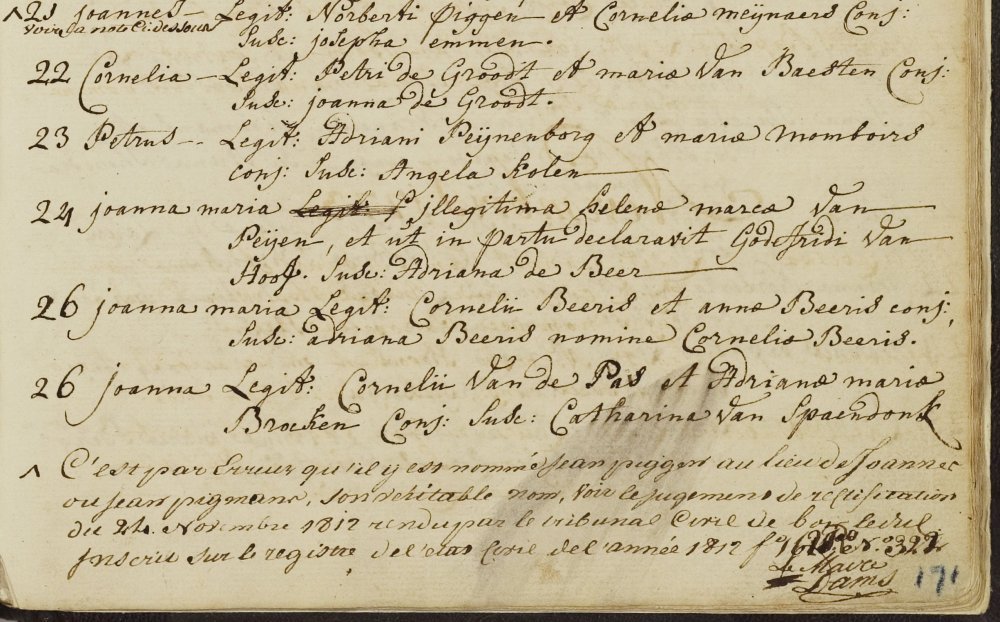 ^21 joannes Legit: Norberti Piggen et Corneliæ meijnaers Conj:
voiez la note ci: dessous
Susc: josepha emmen.
22 Cornelia – Legit: Petri de Groodt et mariæ Van Baesten Conj:
Susc: joanna de Groodt.
23 Petrus -- Legit: Adriani Peijnenborg et mariæ momboirs
conj: Susc: Angela Kolen
24 joanna maria Legit: jllegitima helenæ marcæ Van
Peijen, et ut in partu declaravit Godefridi Van
Hoof. Susc: Adriana de Beer
26 joanna maria Legit: Cornelii Beeris et annæ Beeris conj:
Susc: adriana Beeris nomine Corneliæ Beeris.
26 joanna Legit: Cornelii Van de Pas et Adrianæ mariæ
Brocken Conj: Susc: Catharina Van Spaendonk
^ C'est par Erreur qu'il y est nommé jean piggen au lieu de Joannes
ou jean pigmans, son véritable nom, Voir le jugement de rectification
du 24 Novembre 1812 rendu par le tribunal Civil de
Inscrit sur le registre de l'état Civil de l'année 1812 f° N° 322
Le Maire
Dams
171